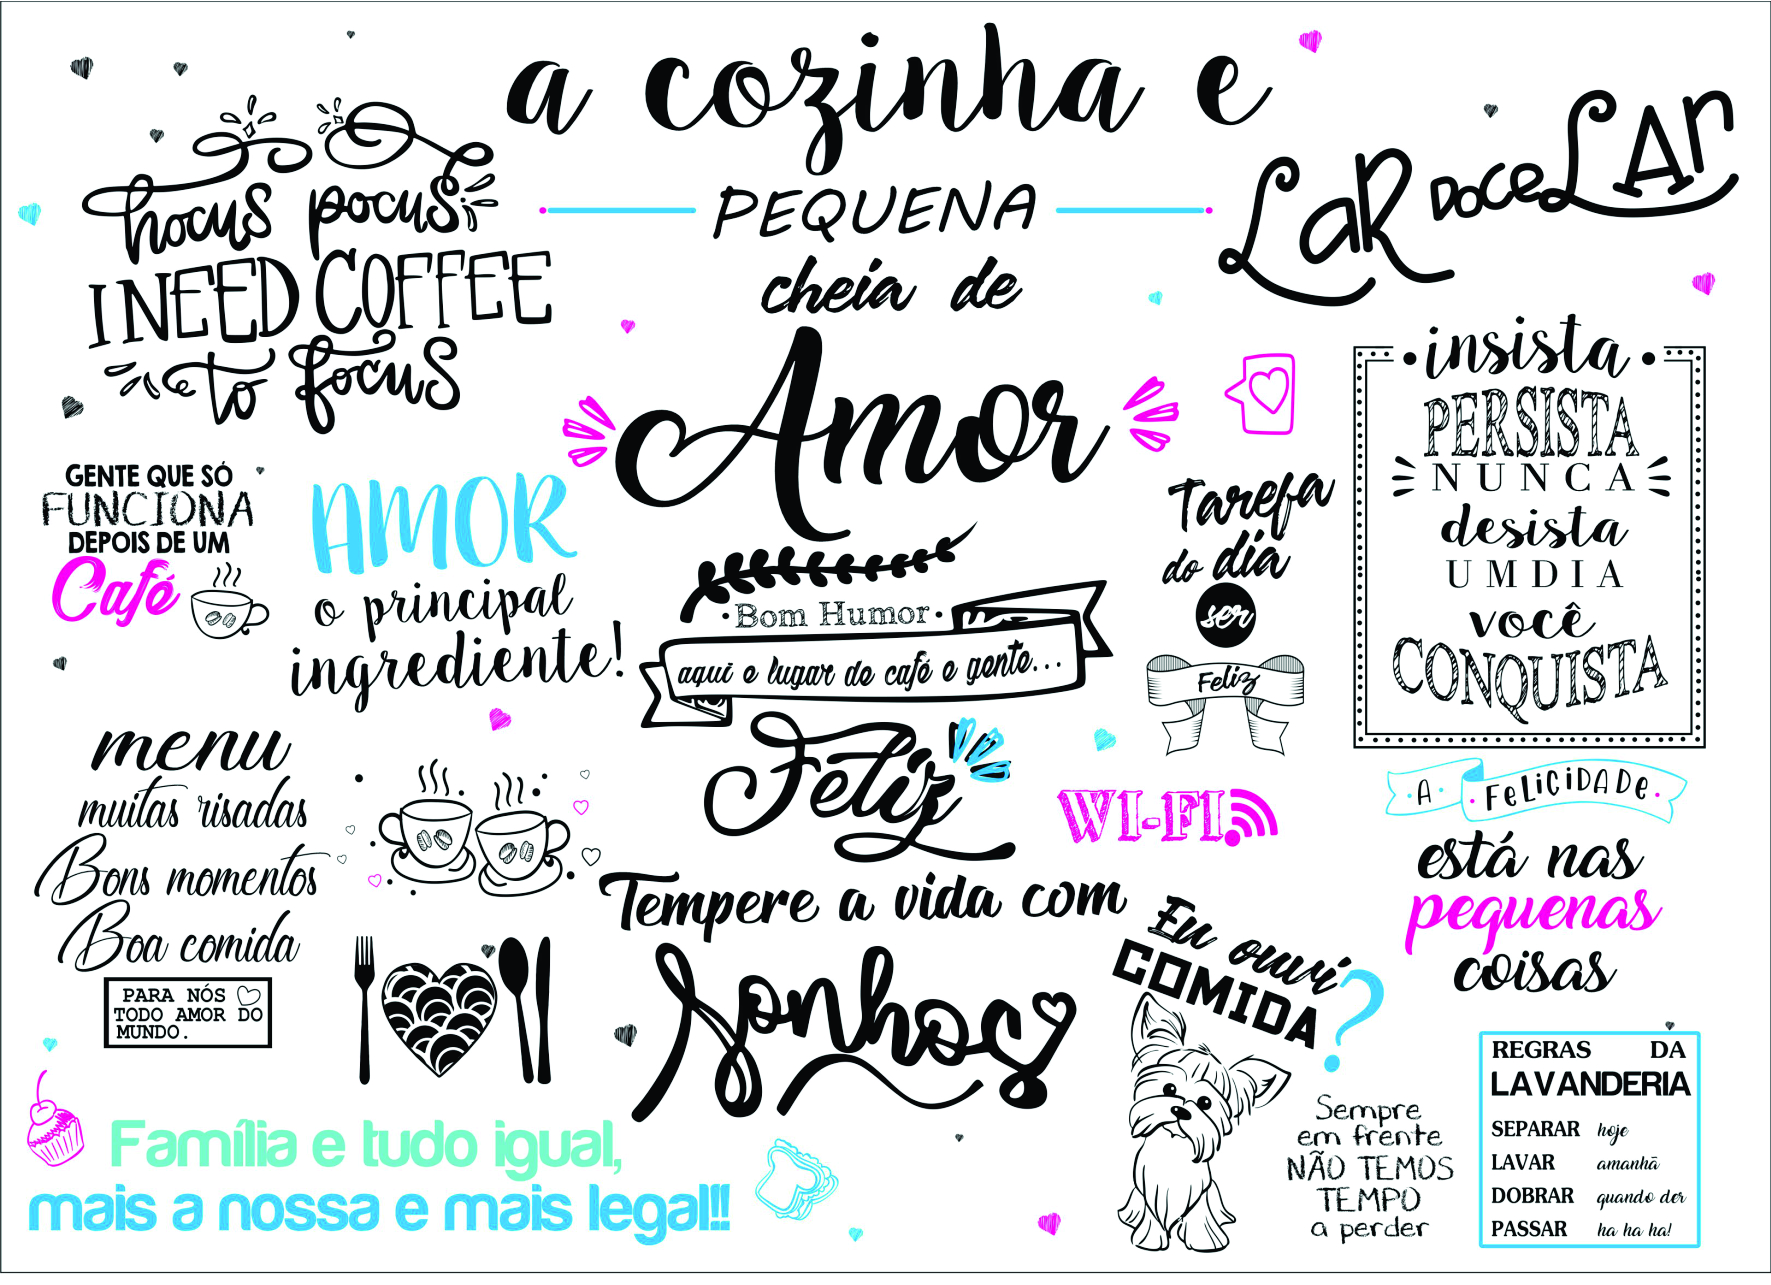 a cozinha e
PEQUENA
cheia de
Amor
hocus pocus
I NEED COFFEE
to focus
LaR DOCE LAr
insista
PERSISTA
NUNCA
desista
UM DIA
você
CONQUISTA
GENTE QUE SÓ
FUNCIONA
DEPOIS DE UM
Café
AMOR
o principal
ingrediente!
Bom Humor
aqui e lugar de café e gente...
Feliz
Tarefa
do dia
ser
Feliz
WI-FI
A FeLiCiDADe
está nas
pequenas
coisas
menu
muitas risadas
Bons momentos
Boa comida
PARA NÓS
TODO AMOR DO
MUNDO.
Tempere a vida com
Sonhos
Eu ouvi
COMIDA?
Sempre
em frente
NÃO TEMOS
TEMPO
a perder
REGRAS DA
LAVANDERIA
SEPARAR hoje
LAVAR amanhã
DOBRAR quando der
PASSAR ha ha ha!
Família e tudo igual,
mais a nossa e mais legal!!